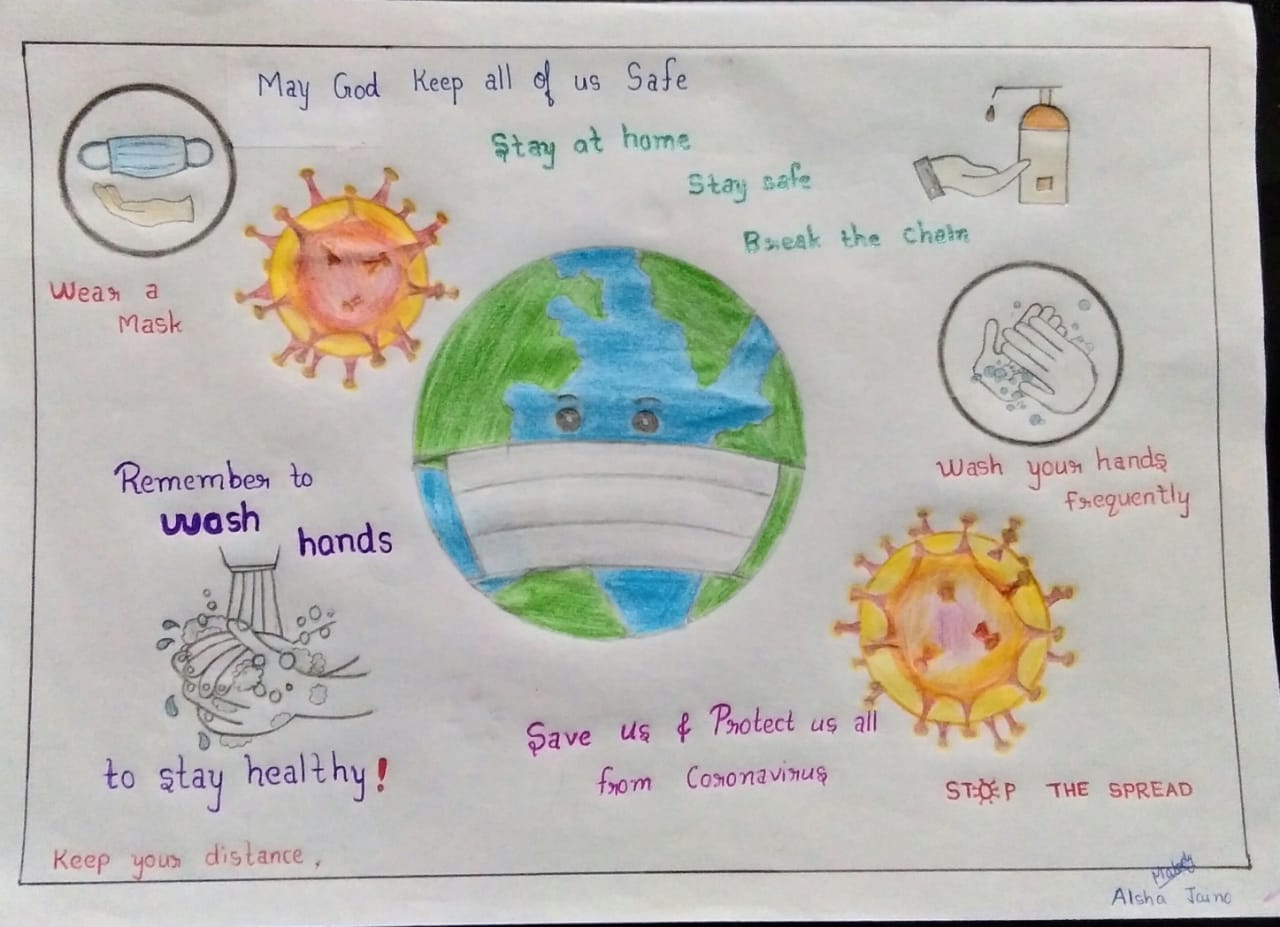 May God Keep all of us Safe
Stay at home
Stay safe
Break the Chain
Wear a
Mask
Wash your hands
frequently
Remember to
wash
hands
to stay healthy!
Save us & Protect us all
from Coronavirus
STOP THE SPREAD
Keep your distance,
Alsha Jaino